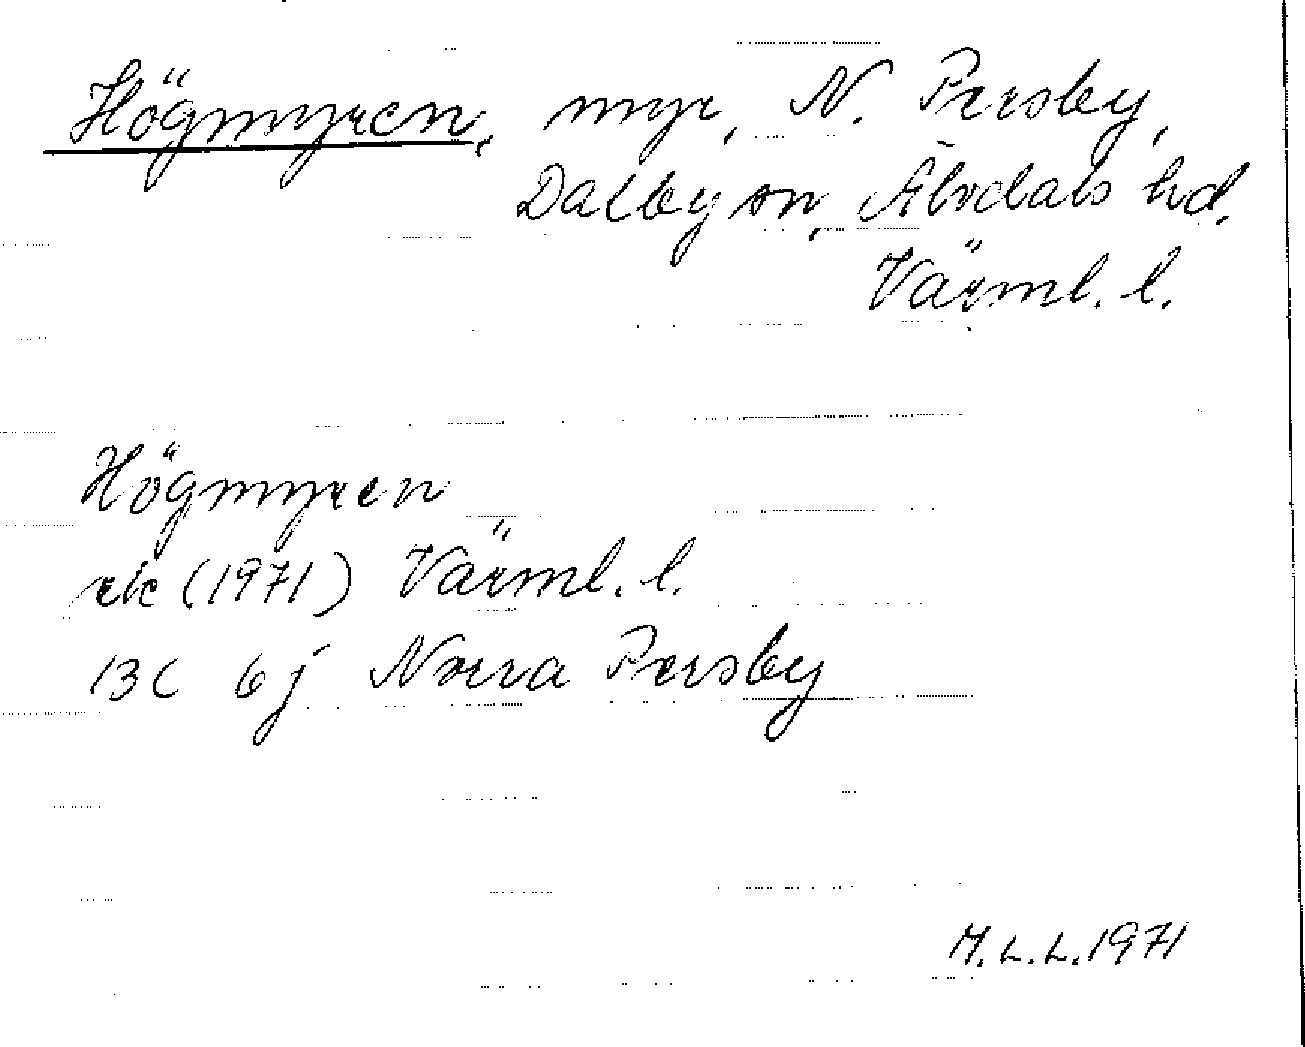 Högmyren, myr, N. Persby,
Dalby sn, Älvdals hd,
Värml. l.
Högmyren
rek (1971) Värml. l.
13C 6j Norra Persby
M.L.L. 1971